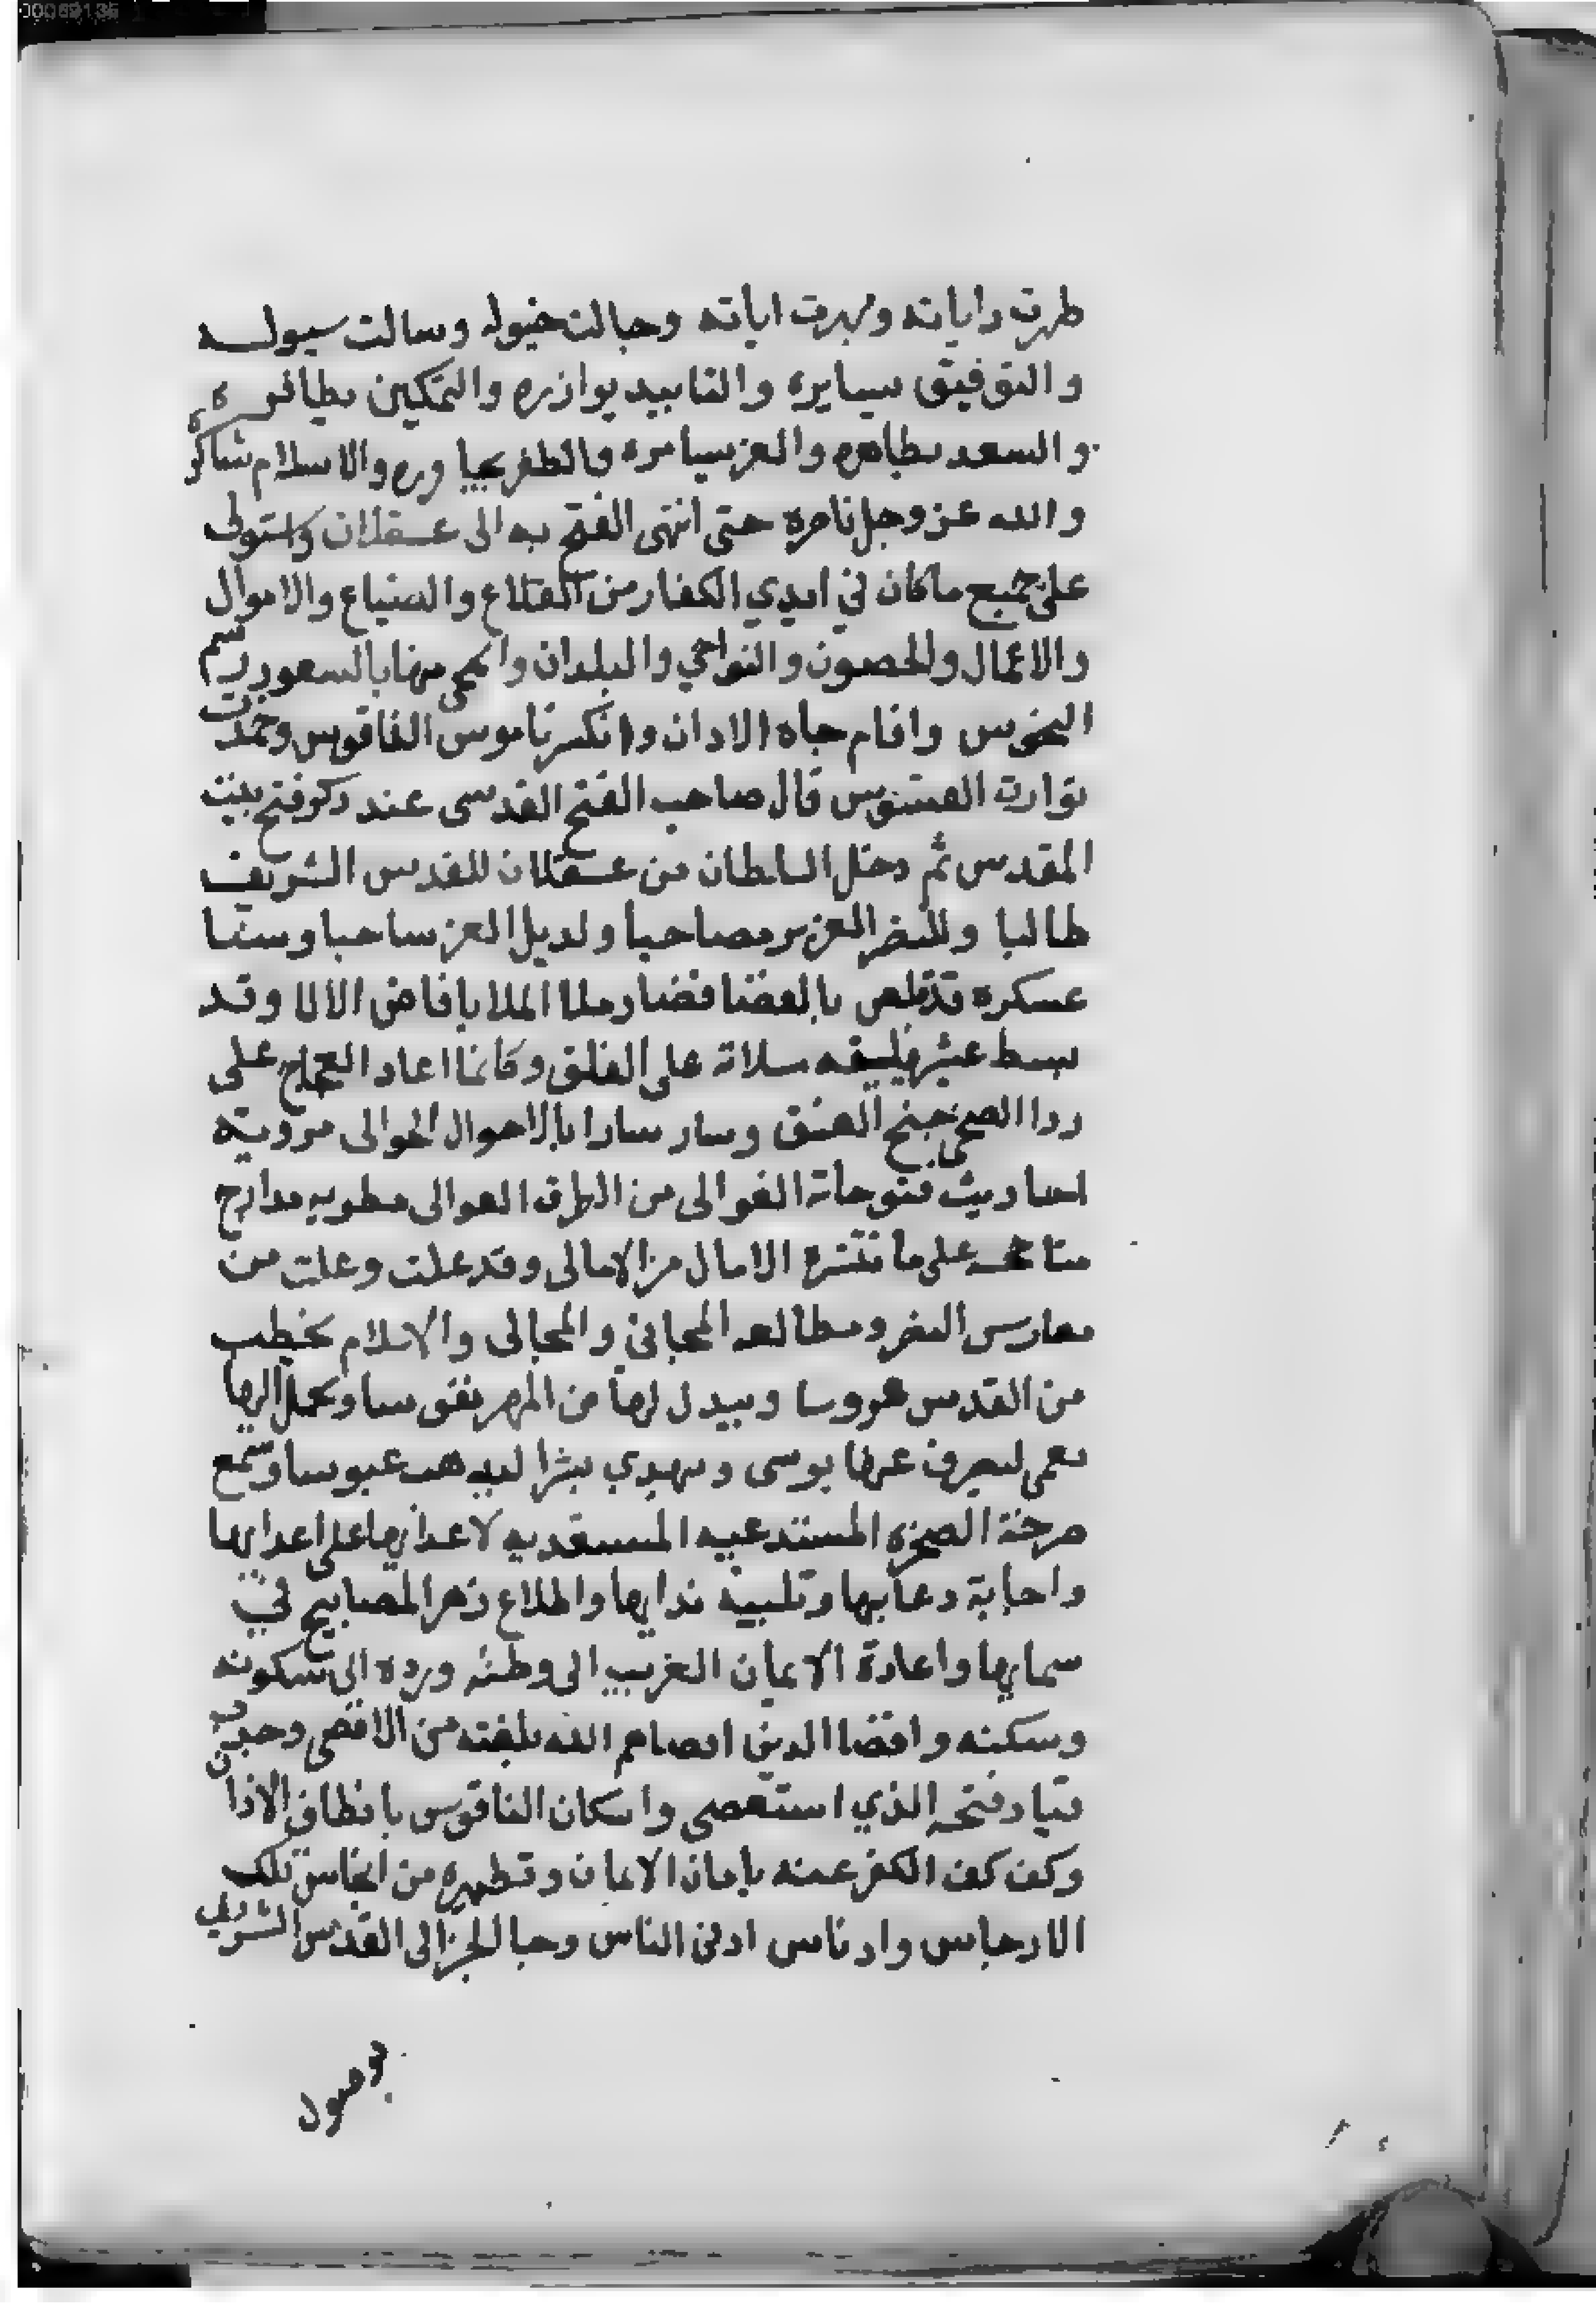 00069135
ظهرت راياته وبهرت اياته وجالت خيوله وسالت سيوله
والتوفيق يسايره والتاييد يوازره والتمكين يظافره
والسعد يظاهره والعز يسامره والظفر يجاوره والاسلام شاكره
والله عز وجل ناصره حتى انتهى الفتح به الى عسقلان واستولى
على جميع ماكان في ايدي الكفار من القلاع والضياع والاموال
والاعمال والحصون والنواحي والبلدان وامحى منها بالسعود رسم
النحوس واقام جاه الاذان وانكسر ناموس الناقوس وخمدت
قال صاحب الفتح القدسي عند ذكر فتح بيت
المقدس ثم رحل السلطان من عسقلان للقدس الشريف
طالبا وللنصر العزيز مصاحبا ولذيل العز ساحبا
عسكره بالفضا فضا وملا الملا بافاض الالا وقد
بسط على الفلق وكانما اعاد العجاج على
ردا الضحى جنح الغسق وسار سارا بالاحوال الحوالى مروية
احاديث فتوحاته الغوالى من الطرق العوالى مطوية مدارج
على ما الامال من الامالى وقد وعلت من
النصر ومطالعه المجاني والمجالى والاسلام يخطب
من القدس عروسا ويبذل لها من المهر نفوسا ويحمل اليها
نعمى ليصرف عنها بوسى ويهدي بشرا ليذهب عبوسا وتسمع
صرخة الصخره المستدعيه المستعديه لاعدايها على اعدايها
واجابة دعايها وتلبية ندايها واطلاع زهر المصابيح في
سمايها واعادة الايمان الغريب الى وطنه ورده الى سكونه
وسكنه واقصا الذين اقصاهم الله بلعنته من الاقصى وجذب
قياد فتحه الذي استعصى واسكان الناقوس بانطاق الاذان
وكف كف الكفر عنه بايمان الايمان وتطهيره من انجاس تلك
الارجاس وادناس ادنى الناس وجا الخبر الى القدس الشريف
بوصول